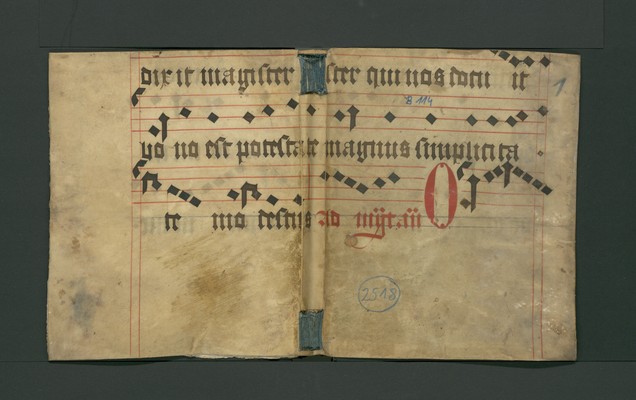 dixit magister ster qui nos docu it
1
B 114
vo no est potestate magnus simplicita
te mo destus ad mgt. an O
2518